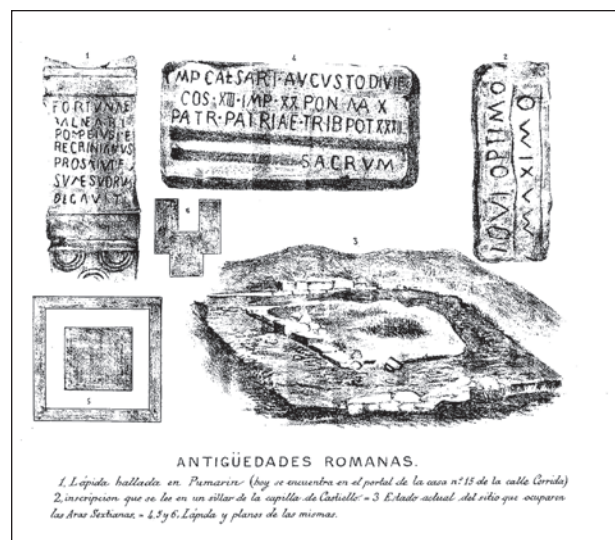 1
FORTVNAE
BALNEARI
POMPEIVS PE
REGRINIANVS
PRO SALVTE
SVA ET SVORVM
4
MP CAESARI·AVGVSTO DIVI F
COS·XIII·IMP·XX PON MAX
PATR·PATRIAE·TRIB POT XXXII
SACRVM
2
IOVI OPTIMO
MAXIMO
6
3
5
ANTIGÜEDADES ROMANAS.
1, Lápida hallada en Pumarin (hoy se encuentra en el portal de la casa nº 15 de la calle Corrida)
2, inscripcion que se lee en un sillar de la capilla de Castiello = 3 Estado actual del sitio que ocuparon
las Aras Sextianas, = 4, 5 y 6, Lápida y planos de las mismas.